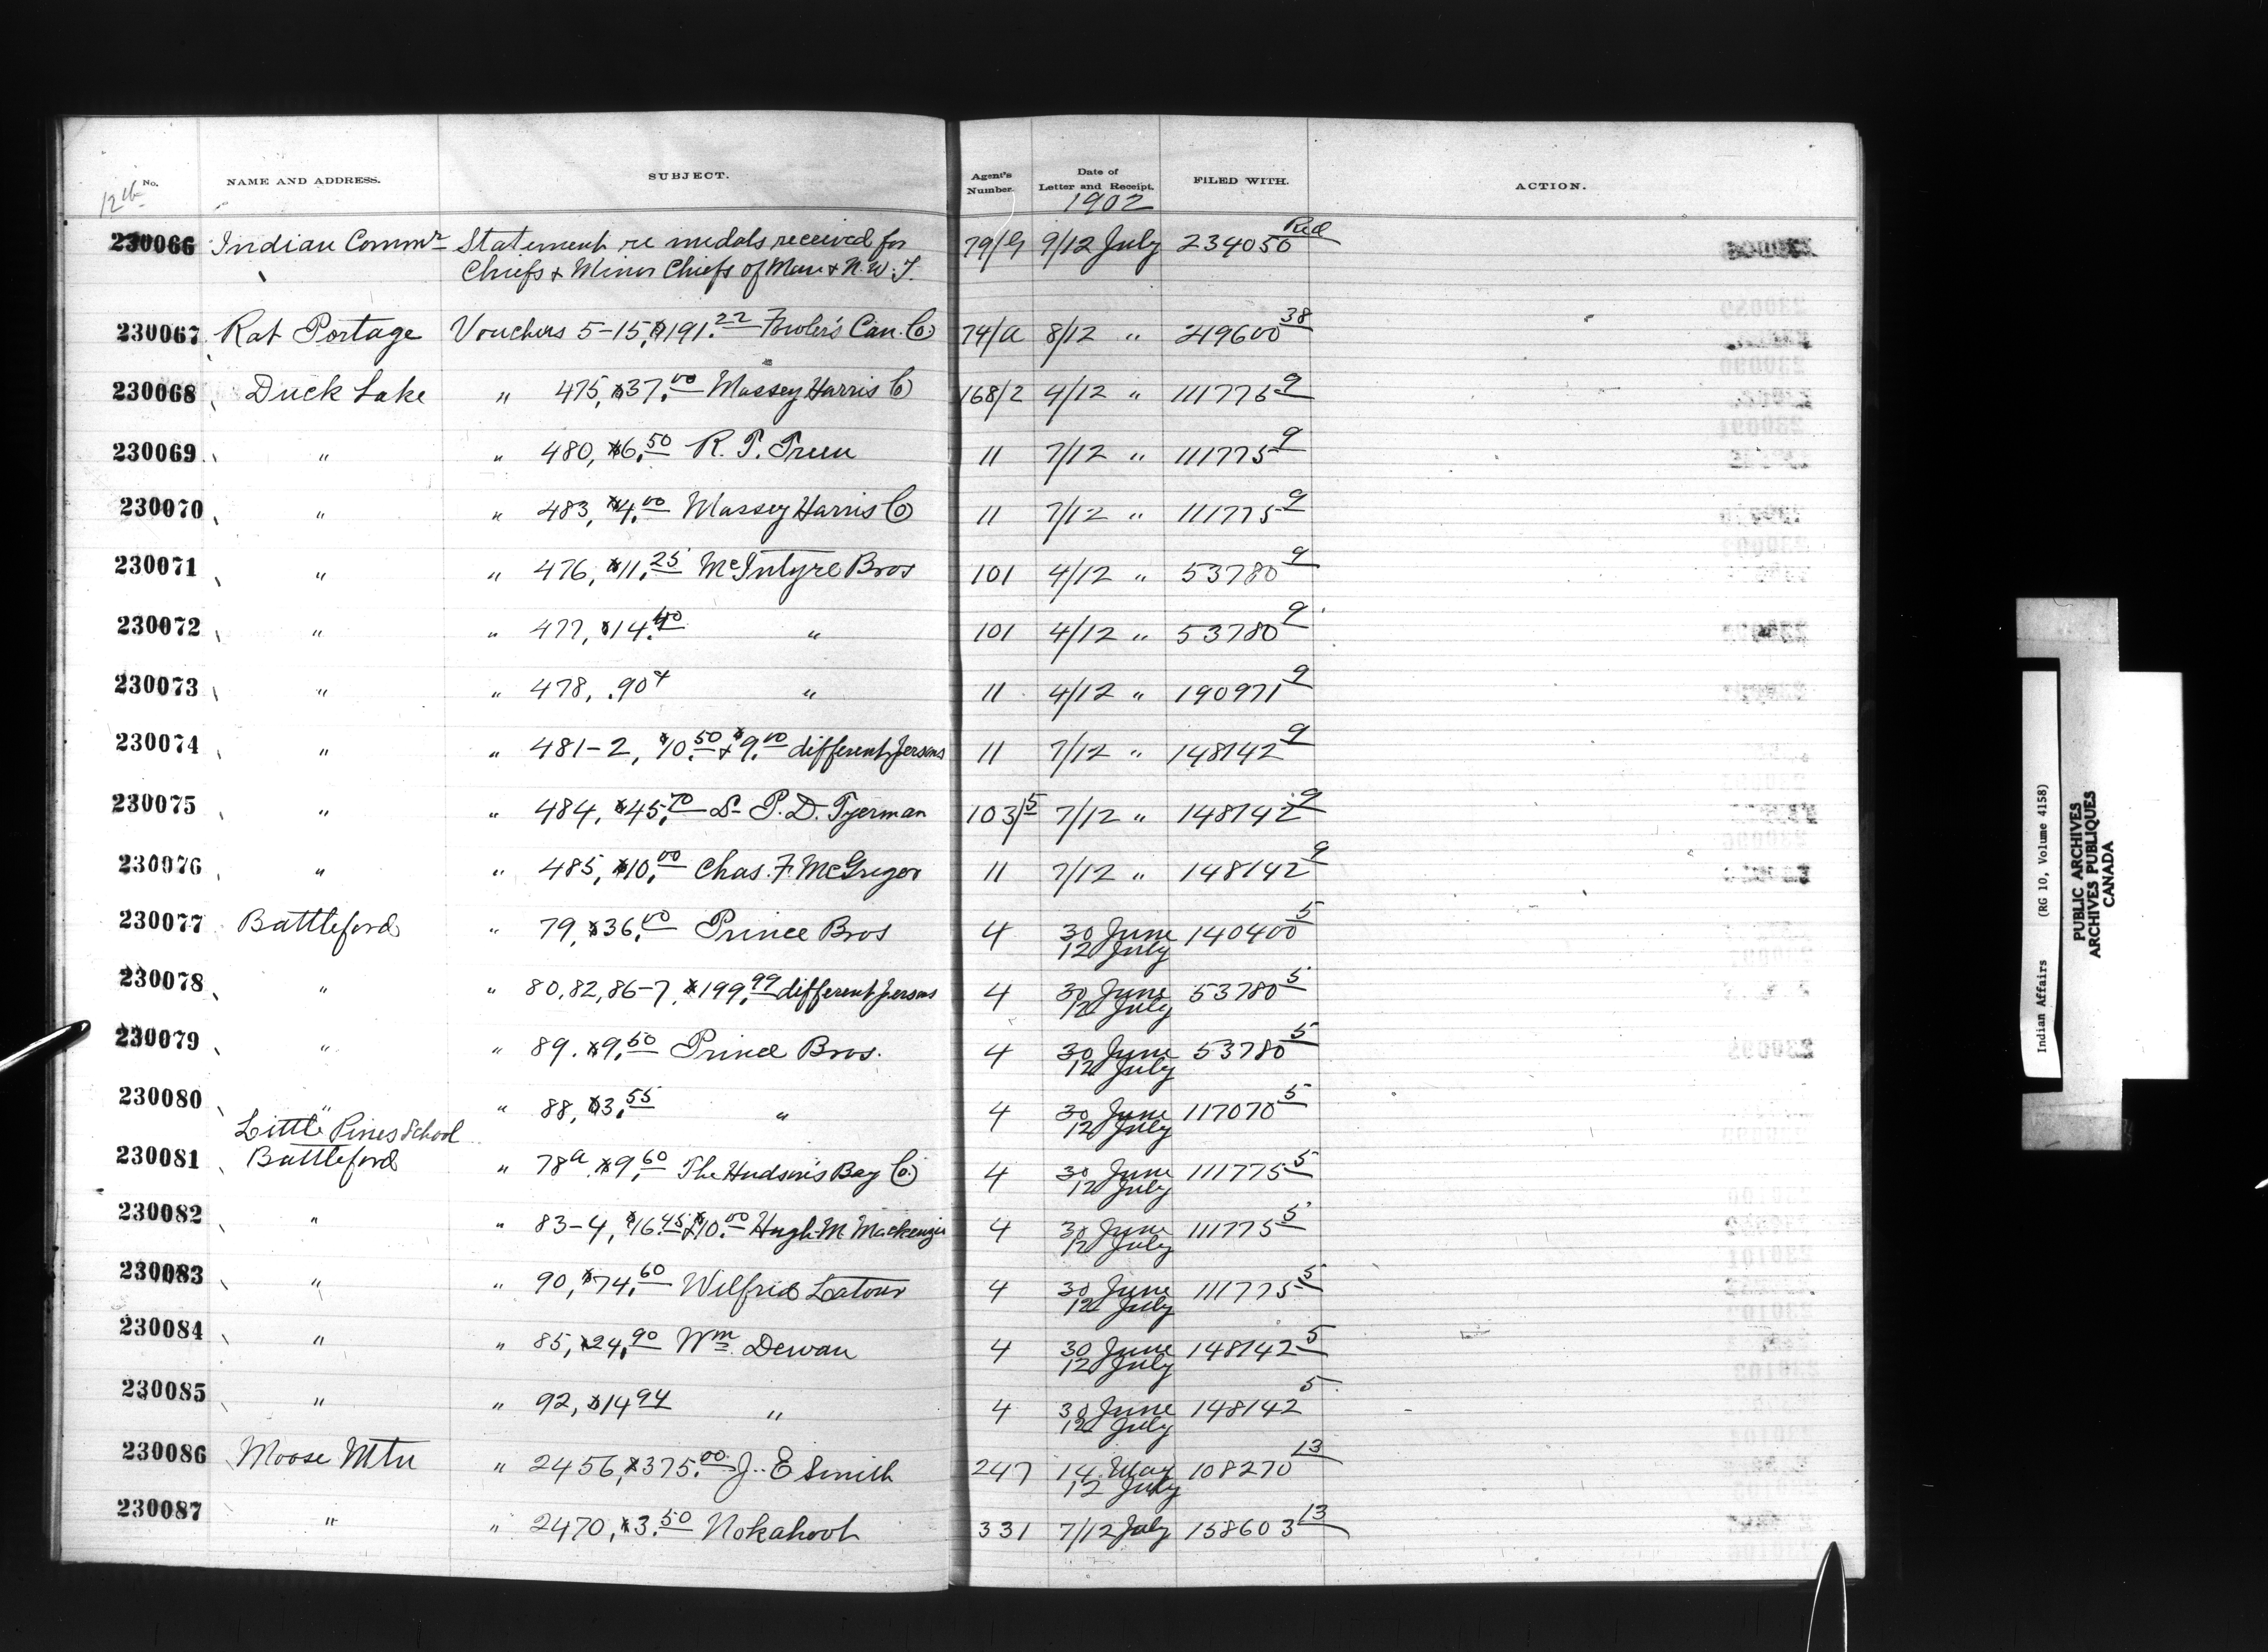 No. NAME AND ADDRESS. SUBJECT. Agent's Number. Date of Letter and Receipt. FILED WITH. ACTION.
12th 1902
230066 Indian Commr Statement re medals received for 79/G 9/12 July 234056 Red
Chiefs & Minor Chiefs of Man & N.W.T.
230067 Rat Portage Vouchers 5-15, $191.22 Fowler's Can. Co 74/a 8/12 " 219600 38
230068 Duck Lake " 475, $37.00 Massey Harris Co 168/2 4/12 " 111775 9
230069 " " 480, $6.50 R. T. 11 7/12 " 111775 9
230070 " " 483, $4.00 Massey Harris Co 11 7/12 " 111775 9
230071 " " 476, $11.25 McIntyre Bros 101 4/12 " 53780 9
230072 " " 477, $14.40 " 101 4/12 " 53780 9
230073 " " 478, .90 " 11 4/12 " 190971 9
230074 " " 481-2, $10.50 & $9.00 different persons 11 7/12 " 148142 9
230075 " " 484, $45.70 P. D. Tyerman 103/5 7/12 " 148142 9
230076 " " 485, $10.00 Chas. F. McGregor 11 7/12 " 148142 9
230077 Battleford " 79, $36.00 Prince Bros 4 30 June 12 July 140400 5
230078 " " 80, 82, 86-7, $199.99 different persons 4 30 June 12 July 53780 5
230079 " " 89. $9.50 Prince Bros. 4 30 June 12 July 53780 5
230080 " " 88, $3.55 " 4 30 June 12 July 117070 5
Little Pines School
230081 Battleford " 78a $9.60 The Hudson's Bay Co 4 30 June 12 July 111775 5
230082 " " 83-4, $16.45 & $10.00 Hugh M Mackenzie 4 30 June 12 July 111775 5
230083 " " 90, $74.60 Wilfrid Latour 4 30 June 12 July 111775 5
230084 " " 85, $24.90 Wm. Dewan 4 30 June 12 July 148142 5
230085 " " 92, $14 94 " 4 30 June 12 July 148142 5
230086 Moose Mtn " 2456, $375.00 J. E Smith 247 14 May 12 July 108270 13
230087 " " 2470, $3.50 Nokahoot 331 7/12 July 158603 13
Indian Affairs (RG 10, Volume 4158)
PUBLIC ARCHIVES
ARCHIVES PUBLIQUES
CANADA